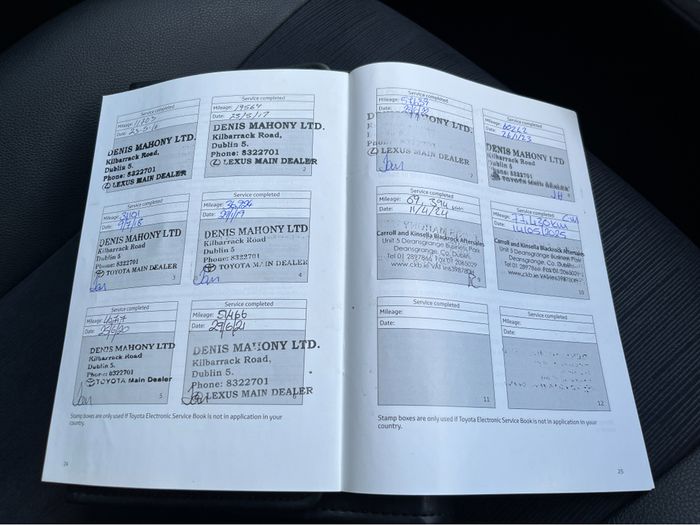 Service completed
Mileage: 11203
Date: 23-5-16
DENIS MAHONY LTD.
Kilbarrack Road,
Dublin 5.
Phone: 8322701
LEXUS MAIN DEALER
1
Service completed
Mileage: 19564
Date: 23/5/17
DENIS MAHONY LTD.
Kilbarrack Road,
Dublin 5.
Phone: 8322701
LEXUS MAIN DEALER
2
Service completed
Mileage:
Date: 9/7/18
DENIS MAHONY LTD
Kilbarrack Road
Dublin 5
Phone: 8322701
TOYOTA MAIN DEALER
Ian
3
Service completed
Mileage: 36,996
Date:
DENIS MAHONY LTD
Kilbarrack Road
Dublin 5
Phone: 8322701
TOYOTA MAIN DEALER
Ian
4
Service completed
Mileage:
Date:
DENIS MAHONY LTD
Kilbarrack Road
Dublin 5
Phone: 8322701
TOYOTA Main Dealer
Ian
5
Service completed
Mileage: 51466
Date: 29/6/21
DENIS MAHONY LTD.
Kilbarrack Road,
Dublin 5.
Phone: 8322701
LEXUS MAIN DEALER
Stamp boxes are only used if Toyota Electronic Service Book is not in application in your
country.
24
Service completed
Mileage:
Date:
DENIS MAHONY LTD.
Kilbarrack Road,
Dublin 5.
Phone: 8322701
LEXUS MAIN DEALER
Ian
7
Service completed
Mileage: 60262
Date: 26/1/23
DENIS MAHONY LTD.
Kilbarrack Road
Dublin 5
Phone: 8322701
TOYOTA MAIN DEALER
JH
8
Service completed
Mileage: 69,394 km
Date: 11/4/24
Carroll and Kinsella Blackrock Aftersales
Unit 5 Deansgrange Business Park
Deansgrange, Co. Dublin.
www.ckb.ie
Service completed
Mileage: km
Date: 14/05/2025
Carroll and Kinsella Blackrock Aftersales
Unit 5 Deansgrange Business Park
Deansgrange, Co. Dublin.
www.ckb.ie
10
Service completed
Mileage:
Date:
11
Service completed
Mileage:
Date:
12
Stamp boxes are only used if Toyota Electronic Service Book is not in application in your
country.
25